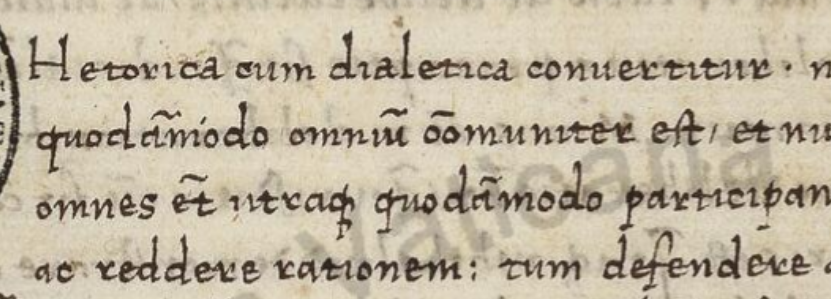 Hetorica cum dialetica conuertitur · n
quodam̃modo omniũ cõmuniter est, et nu
omnes et̃ utraqꝫ quodãmodo participan
ac reddere rationem: tum defendere